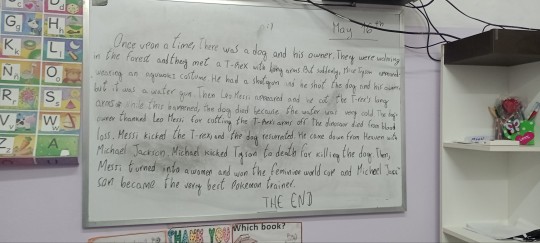 May 16th
Once upon a time, There was a dog and his owner. They were walking
in the forest and they met a T-Rex with long arms. But suddenly, Mike Tyson appeared
wearing an aquaman costume. He had a shotgun and he shot the dog and his owner
but it was a water gun. Then Leo Messi appeared and he cut the T-rex's long
arms. While this happened, the dog died because the water was very cold. The
owner thanked Leo Messi for cutting the T-Rex's arms off. The dinosaur died from blood
loss. Messi kicked the T-rex and the dog resurrected. He came down from Heaven with
Michael Jackson. Michael kicked Tyson to death for killing the dog. Then,
Messi turned into a women and won the feminine world cup and Michael Jack-
son became the very best Pokemon trainer.
THE END
G
H
K
L
Ñ
O
R
S
V
W
Z
THANK YOU
Which book?